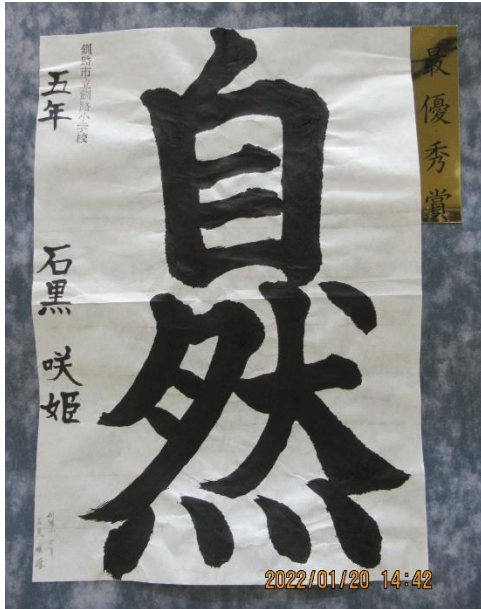 最優秀賞
自然
釧路市立釧路小学校
五年 石黒 咲姫
2022/01/20 14:42